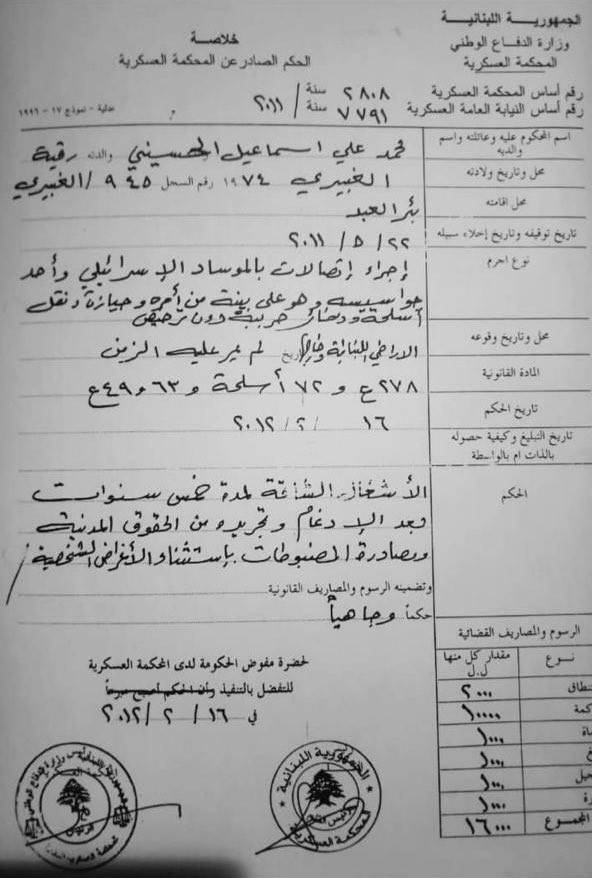 الجمهورية اللبنانية
وزارة الدفاع الوطني
المحكمة العسكرية
خلاصة
الحكم الصادر عن المحكمة العسكرية
رقم أساس المحكمة العسكرية ٢٨٠٨ سنة
رقم أساس النيابة العامة العسكرية ٧٧٩١ سنة / ٢٠١١
عدلية - نموذج ١٧ - ١٩٩٦
اسم المحكوم عليه وعائلته واسم والديه
محمد علي اسماعيل الحسيني والدته رقية
محل وتاريخ ولادته
الغبيري ١٩٧٤ رقم السجل ٩٤٥ / الغبيري
محل اقامته
بئر العبد
تاريخ توقيفه وتاريخ إخلاء سبيله
٢٢ / ٥ / ٢٠١١
نوع اجرم
إجراء إتصالات بالموساد الإسرائيلي وأحد
جواسيسه وهو على بينة من أمره وحيازة ونقل
أسلحة وذخائر حربية دون ترخيص
محل وتاريخ وقوعه
الاراضي اللبنانية وخارجها تاريخ لم يمر عليه الزمن
المادة القانونية
٢٧٨ع و ٧٢ أسلحة و ٦٣ و ٤٩ع
تاريخ الحكم
١٦ / ٢ / ٢٠١٢
تاريخ التبليغ وكيفية حصوله
بالذات ام بالواسطة
الحكم
الأشغال الشاقة لمدة خمس سنوات
وبعد الإدغام وتجريده من الحقوق المدنية
ومصادرة المضبوطات بإستثناء الأغراض الشخصية
وتضمينه الرسوم والمصاريف القانونية
حكماً وجاهياً
لحضرة مفوض الحكومة لدى المحكمة العسكرية
للتفضل بالتنفيذ وأن الحكم أصبح مبرماً
في ١٦ / ٢ / ٢٠١٢
الرسوم والمصاريف القضائية
نوع مقدار كل منها ل.ل
نطاق ٢٠٠٠
كمة ١٠٠٠٠
اة ١٠٠٠
غ ١٠٠٠
حيل ١٠٠٠
رة ١٠٠٠
المجموع ١٦٠٠٠
الجمهورية اللبنانية
المحكمة العسكرية